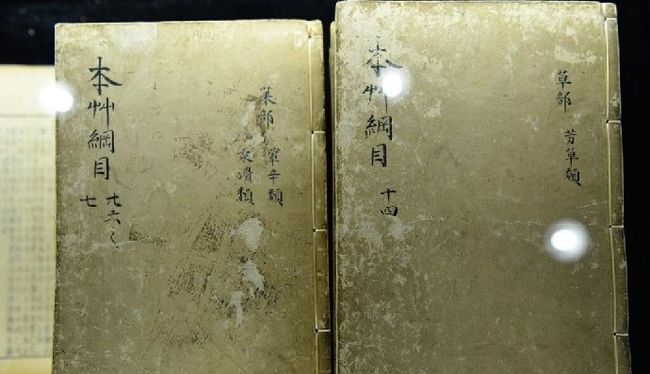 本艸綱目
十四
草部
芳草類
本艸綱目
廿六
七
菜部
葷辛類
柔滑類